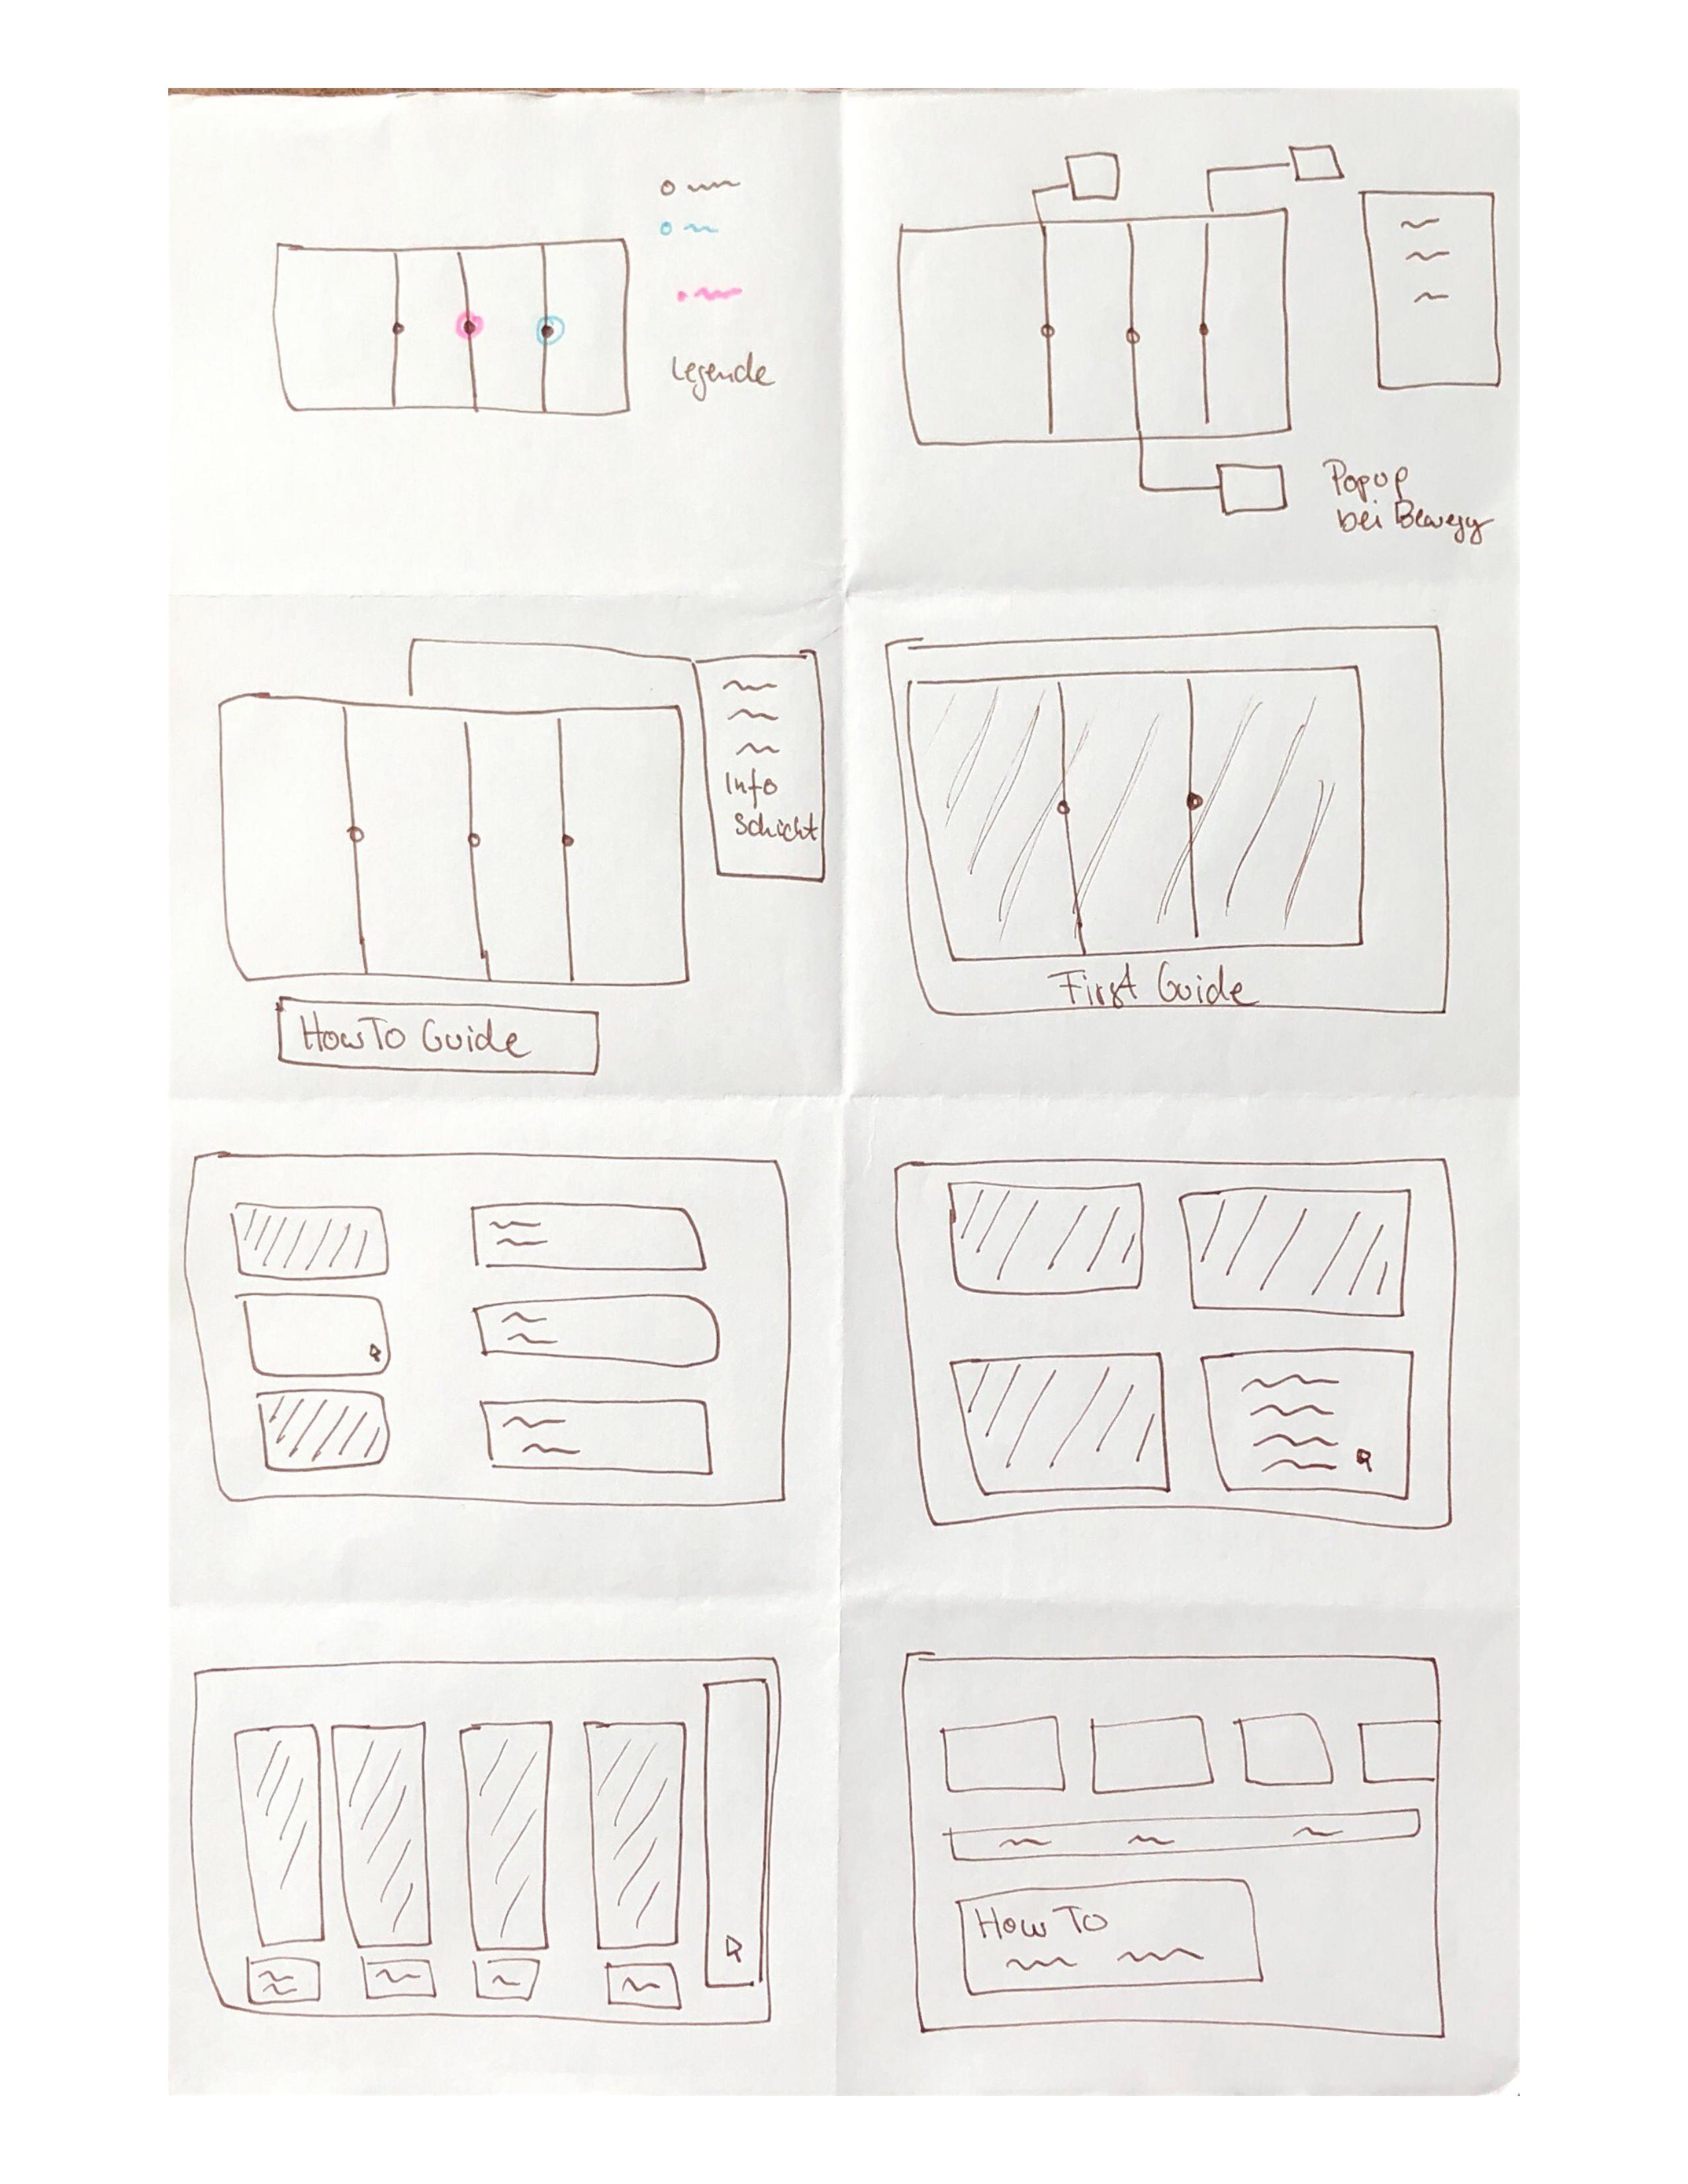 Legende
Popup
bei Bewegg
Info
Schicht
HowTo Guide
First Guide
How To